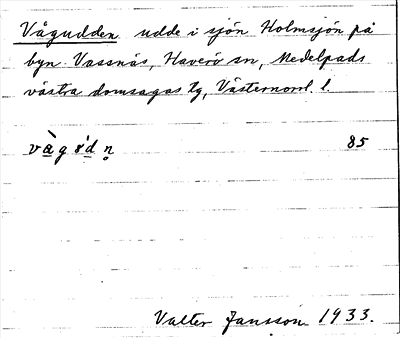 Vågudden udde i sjön Holmsjön på
byn Vassnäs, Haverö sn, Medelpads
västra domsagas tg, Västernorrl. l.
85
Valter Jansson 1933.